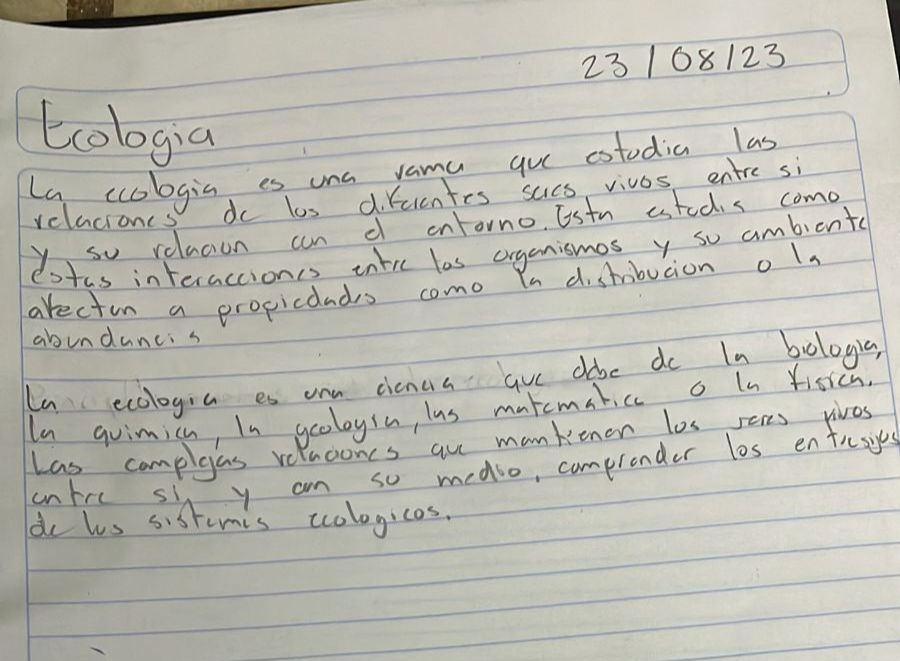 23/08/23
Ecologia
La ecologia es una rama que estudia las
relaciones de los diferentes seres vivos entre si
y su relacion con el entorno. Esta estudia como
estas interacciones entre los organismos y su ambiente
afectan a propiedades como la distribucion o la
abundancia
La ecologia es una ciencia que debe de la biologia,
la quimica, la geologia, las matematica o la fisica.
Las complejas relaciones que mantienen los seres vivos
entre si y con su medio, comprender los
de los sistemas ecologicos.